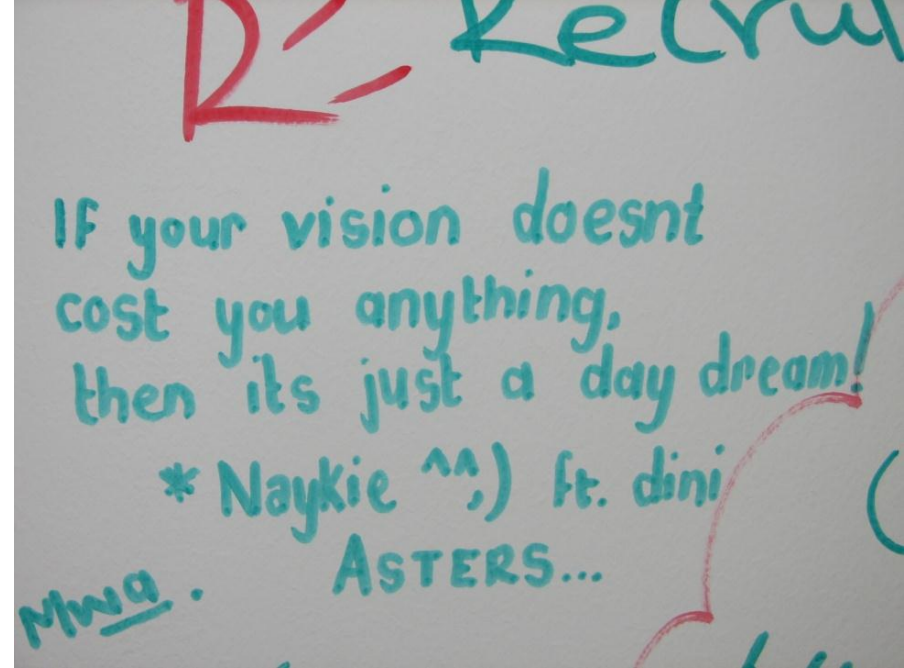 If your vision doesnt
cost you anything,
then its just a day dream!
* Naykie ^^,) ft. dini
ASTERS...
Mwa.